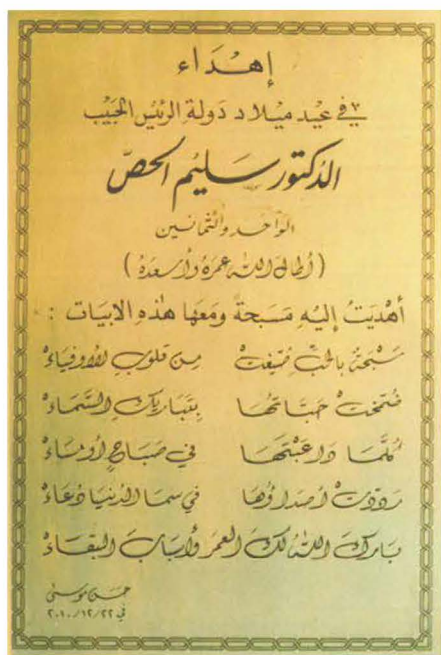 إهداء
في عيد ميلاد دولة الرئيس الحبيب
الدكتور سليم الحصّ
الواحد والثمانين
(أطال الله عمره وأسعده)
أهديتُ إليه مسبحةً ومعها هذه الابيات :
سبحةٌ بالحبّ صيغت من قلوب الأوفياء
فُتحت حبّاتها بتباريك السّماء
كُلّما داعبتها في صباحٍ أو مساء
ردّدت أصداؤها في سما الدنيا دعاء
بارك الله لك العمر وأسباب البقاء
حسن موسى
في ٢٠١٠/١٢/٢٢